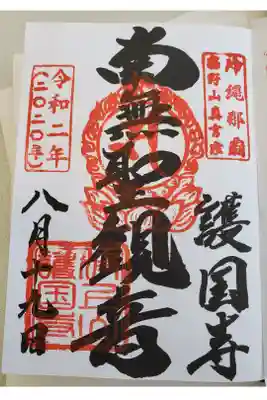 沖縄那覇
高野山真言宗
護国寺
南無聖観音
令和二年
(二〇二〇年)
八月十九日